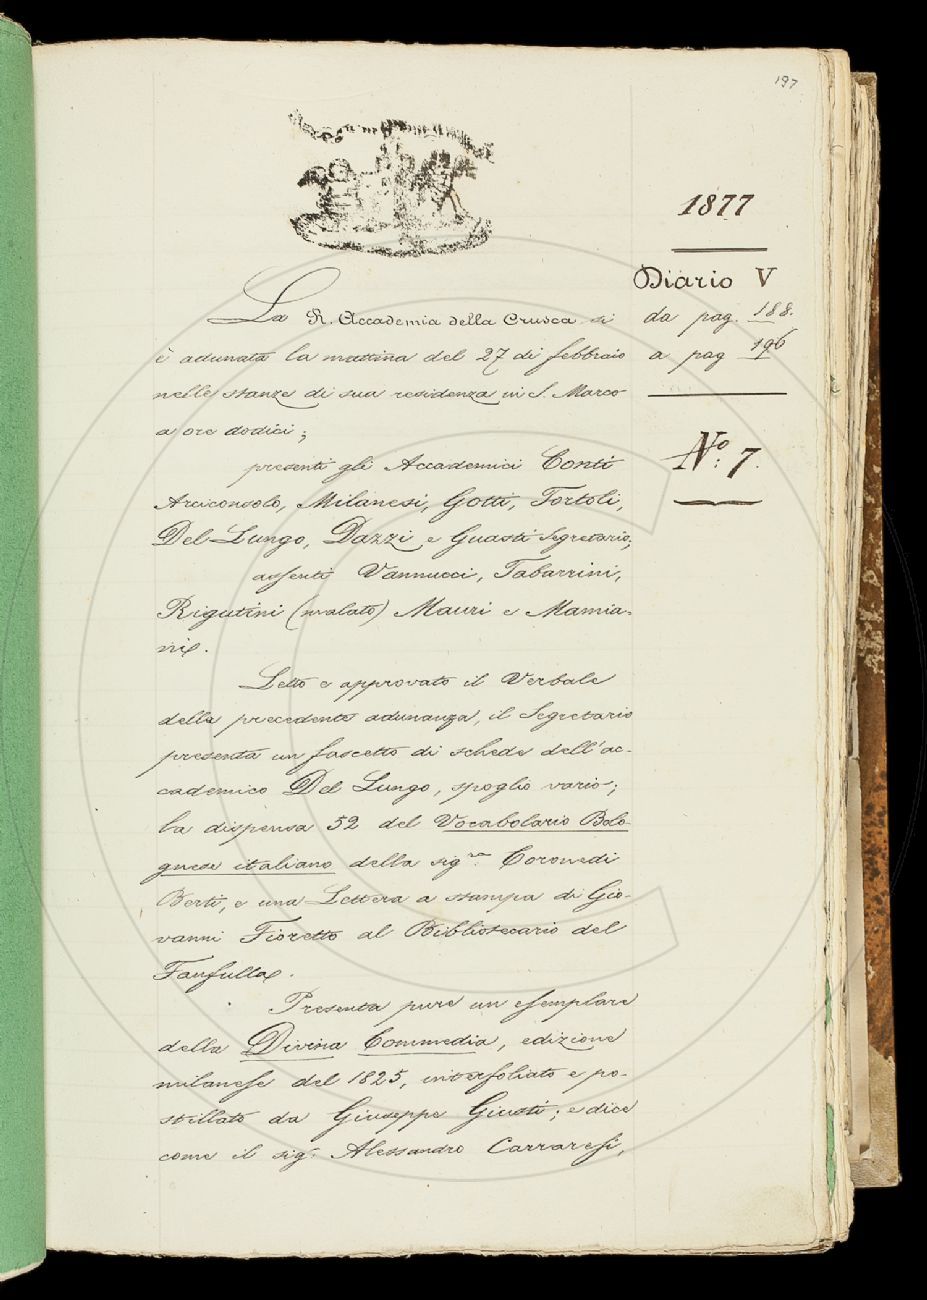 197
1877
Diario V
da pag. 188.
a pag 196
Nº: 7.
La R. Accademia della Crusca si
è adunata la mattina del 27 di febbraio
nelle stanze di sua residenza in S. Marco
a ore dodici;
presenti gli Accademici Conti
Arciconsolo, Milanesi, Gotti, Tortoli,
Del Lungo, Dazzi e Guasti Segretario;
assenti Vannucci, Tabarrini,
Rigutini (malato) Mauri e Mamia-
ni.
Letto e approvato il Verbale
della precedente adunanza, il Segretario
presenta un fascetto di schede dell'ac-
cademico Del Lungo, spoglio vario;
la dispensa 52 del Vocabolario Bolo-
gnese italiano della sig.ra Coronedi
Berti, e una Lettera a stampa di Gio-
vanni Fioretto al Bibliotecario del
Fanfulla.
Presenta pure un esemplare
della Divina Commedia, edizione
milanese del 1825, interfoliato e po-
stillato da Giuseppe Giusti; e dice
come il sig. Alessandro Carraresi,